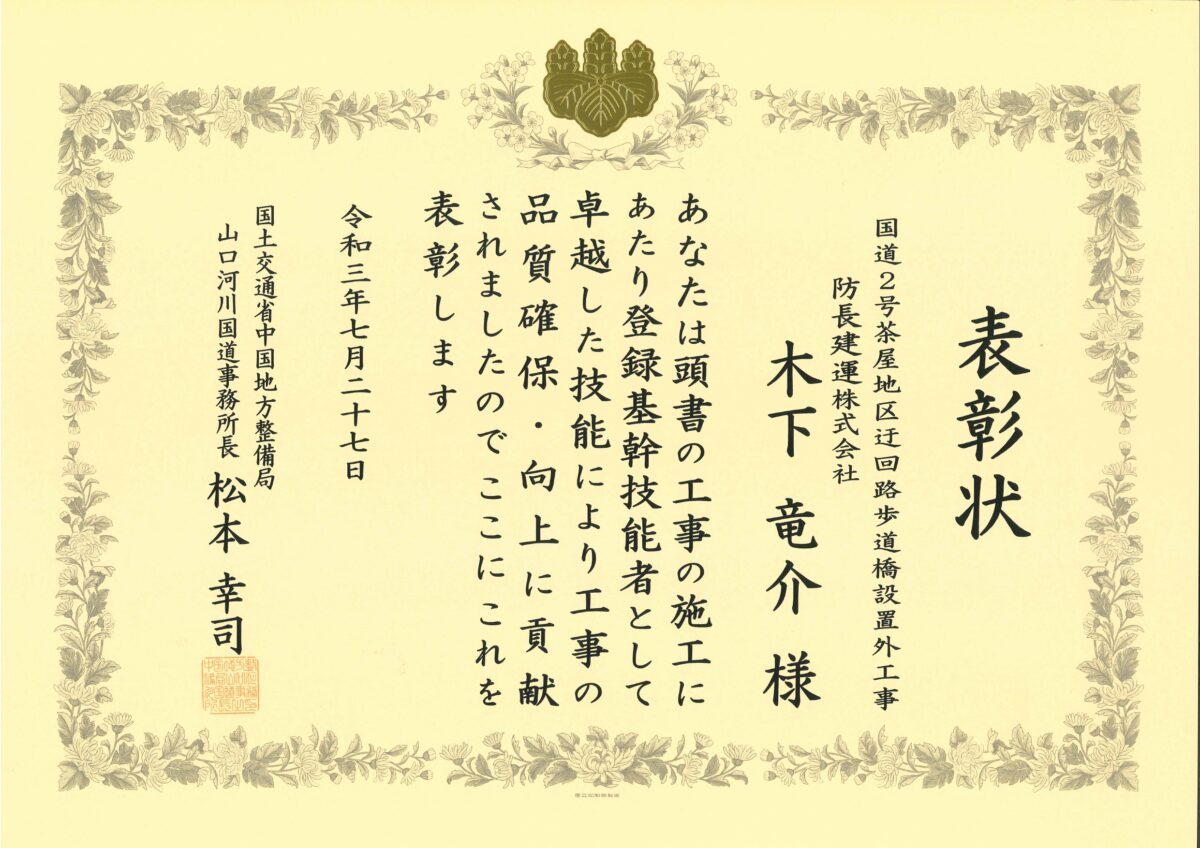 表彰状
国道２号茶屋地区迂回路歩道橋設置外工事
防長建運株式会社
木下 竜介 様
あなたは頭書の工事の施工に
あたり登録基幹技能者として
卓越した技能により工事の
品質確保・向上に貢献
されましたのでここにこれを
表彰します
令和三年七月二十七日
国土交通省中国地方整備局
山口河川国道事務所長 松本 幸司